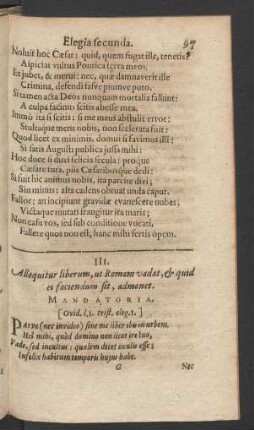 Elegia secunda. 97
Noluit hoc Cæsar: quid, quem fugat ille, tenetis?
Aspiciat vultus Pontica terra meos.
Et jubet, & merui: nec, quæ damnaverit ille
Crimina, defendi fasve piumve puto.
Si tamen acta Deos nunquam mortalia fallunt:
A culpa facinus scitis abesse mea.
Immò ita si scitis: si me meus abstulit error:
Stultaque mens nobis, non scelerata fuit:
Quod licet ex minimis, domui si favimus illi:
Si satis Augusti publica jussa mihi:
Hoc duce si dixi felicia secula; proque
Cæsare tura, piis Cæsaribusque dedi:
Si fuit hic animus nobis, ita parcite divi;
Sin minus: alta cadens obruat unda caput.
Fallor: an incipiunt gravidæ evanescere nubes;
Victaque mutati frangitur ira maris;
Non casu vos, sed sub conditione vocati,
Fallere quos non est, hanc mihi fertis opem.
III.
Alloquitur librum, ut Romam vadat, & quid
ei faciendum sit, admonet.
MANDATORIA.
[Ovid. l.1. trist. eleg.1.]
PArve (nec invideo) sine me liber ibis in urbem.
Hei mihi, quòd domino non licet ire tuo,
Vade, sed incultus: qualem decet exulis esse:
Infelix habitum temporis hujus habe.
G Nec